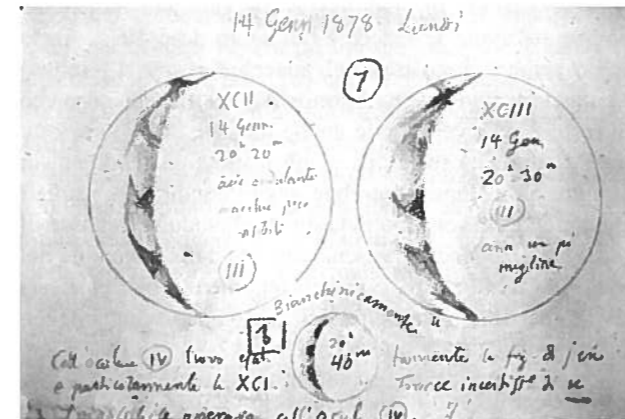 14 Genn 1878 Lunedì
7
XCII
14 Genn.
20h 20m
aria ondulante
macchie poco
visibili
III
XCIII
14 Gen
20h 30m
III
aria un pò
migliore
Bianchinicamente
3
20h
40m
Coll'oculare IV trovo
tamente la fig. di jeri
e particolarmente la XCI.
Tracce incertiss. di
coll'ocul. IV.